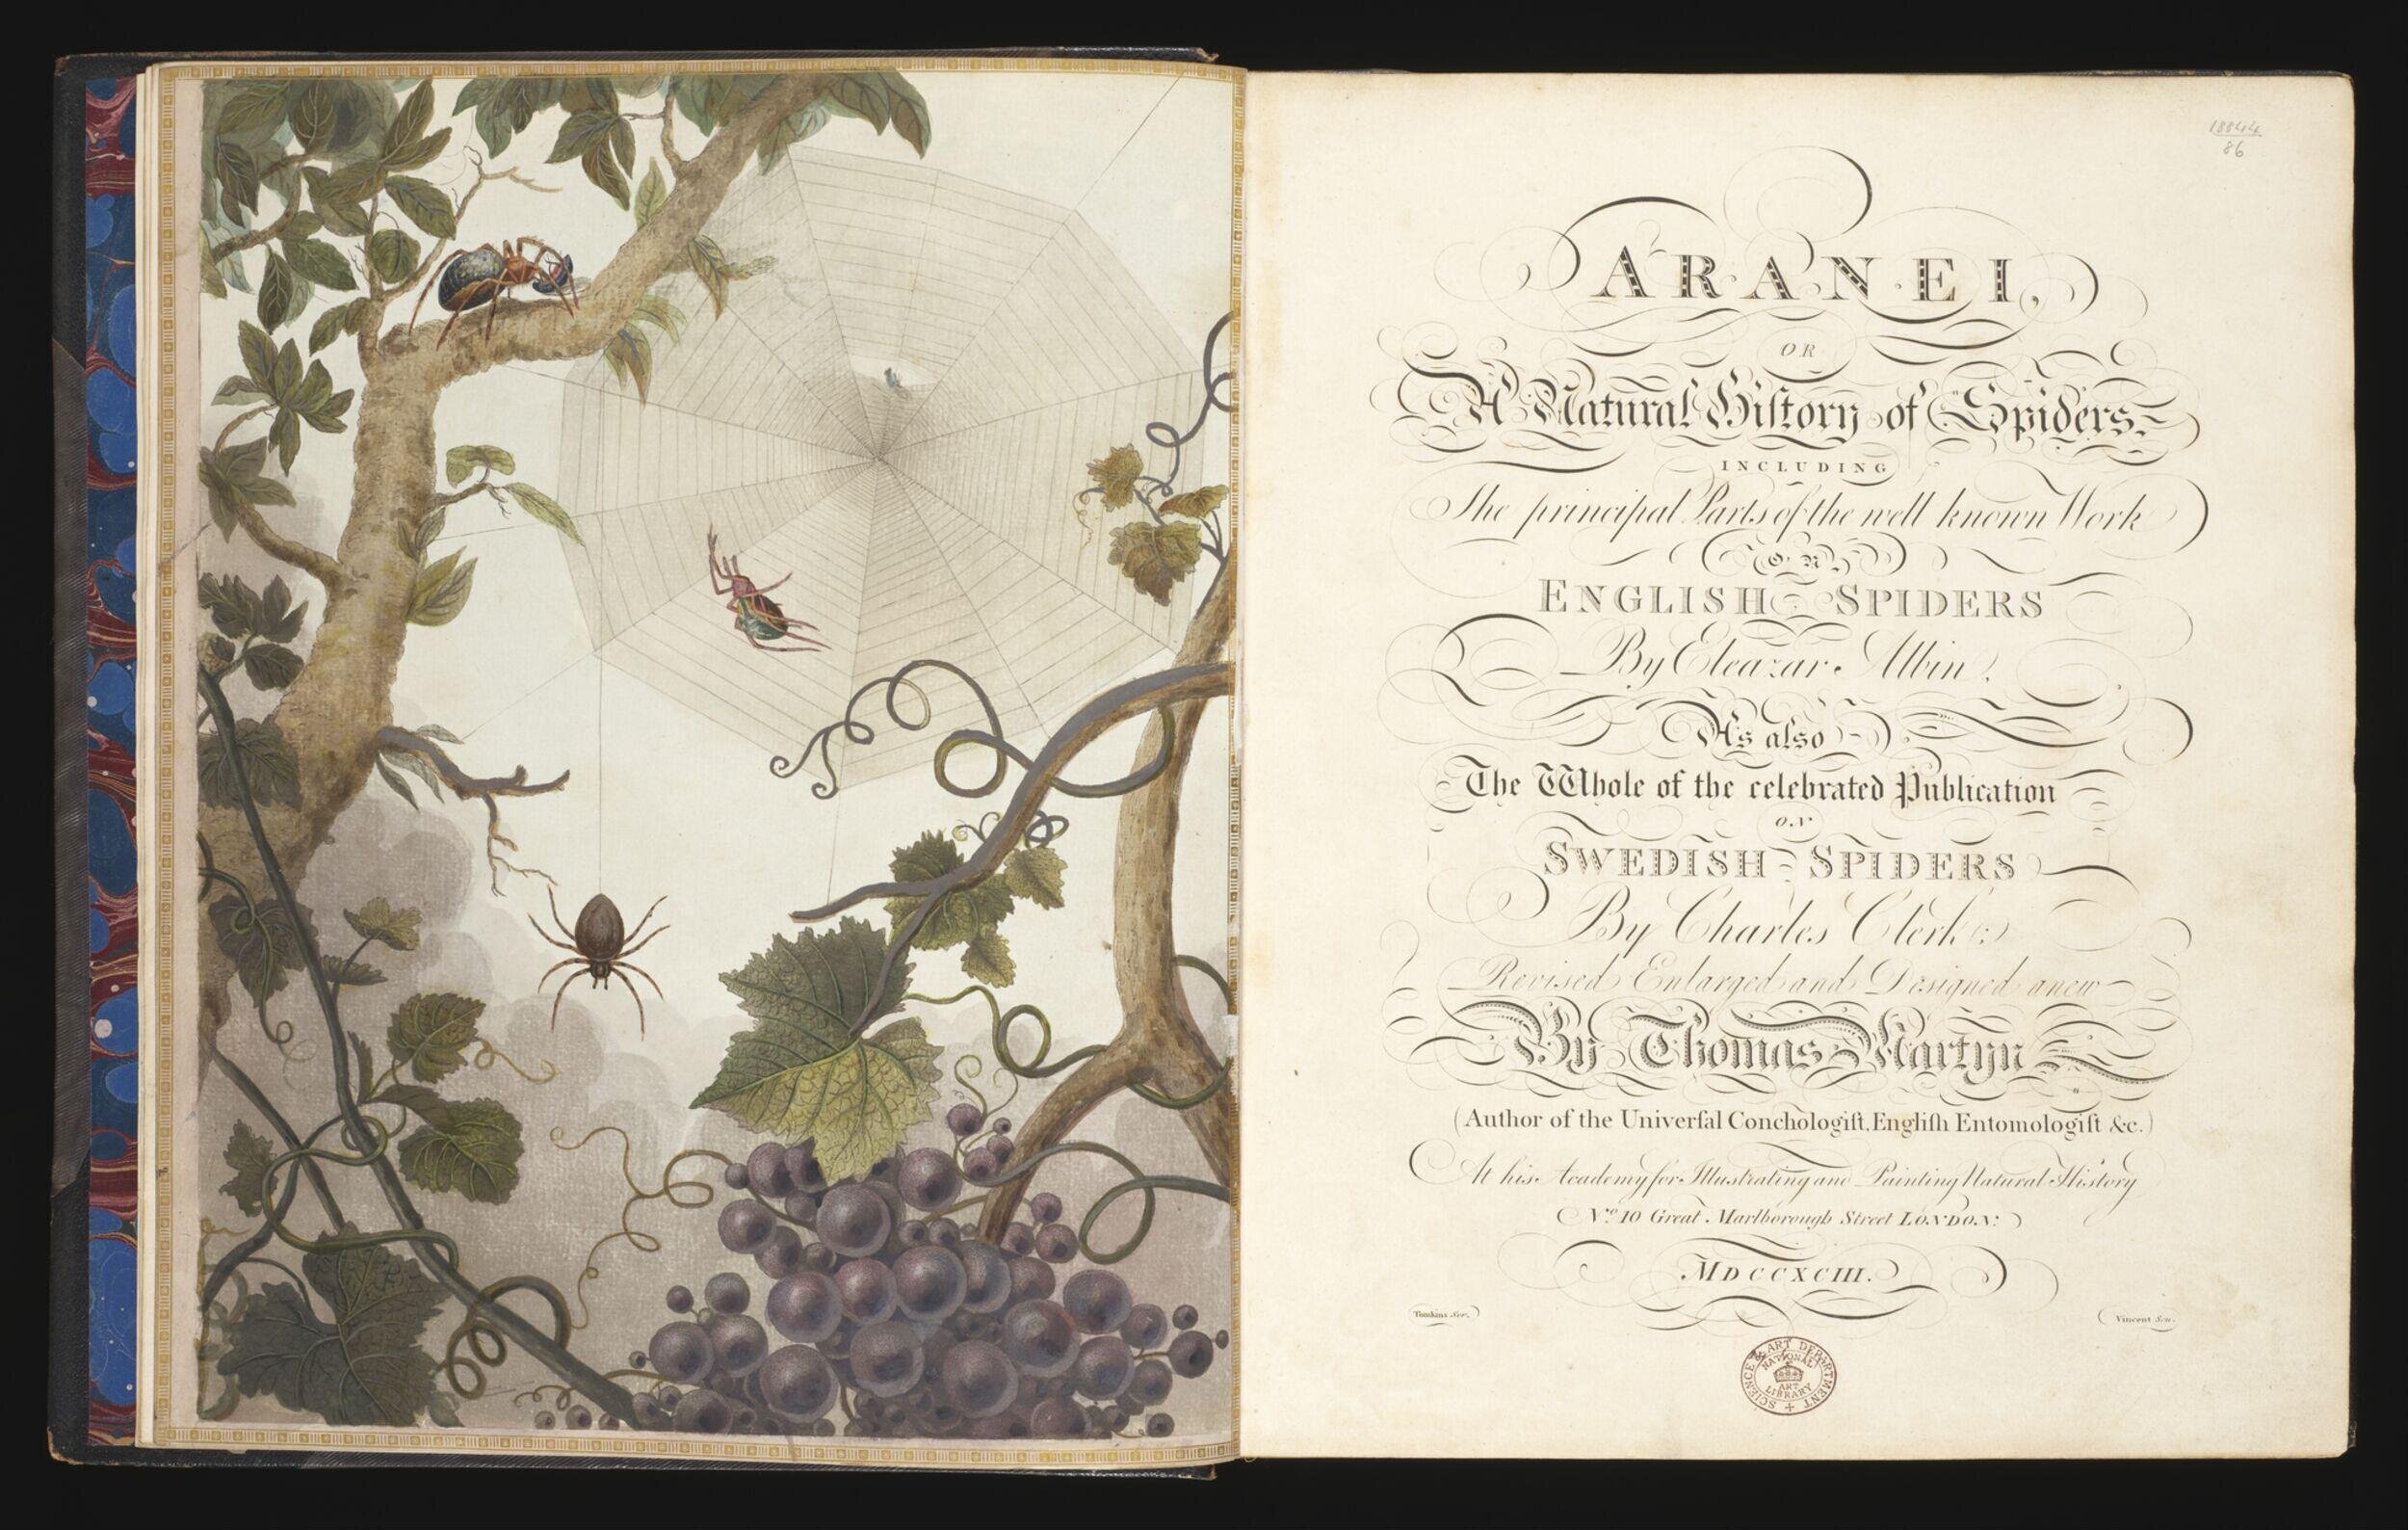 18844
86
ARANEI,
OR
A Natural Hiſtory of Spiders
INCLUDING
The principal Parts of the well known Work
ON
ENGLISH SPIDERS
By Eleazar Albin,
As also
The Whole of the celebrated Publication
ON
SWEDISH SPIDERS
By Charles Clerk;
Revised Enlarged and Designed anew
By Thomas Martyn
(Author of the Univerſal Conchologiſt, Engliſh Entomologiſt &c.)
At his Academy for Illustrating and Painting Natural History
No. 10 Great Marlborough Street LONDON:
MDCCXCIII.
Tomkins Scr.
Vincent Scu.
SCIENCE & ART DEPARTMENT
NATIONAL
ART
LIBRARY